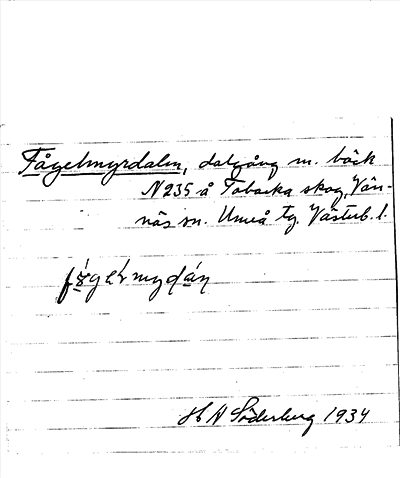 Fågelmyrdalen, dalgång m. bäck
N 235 å Tobacka skog, Vän-
näs sn. Umeå tg. Västerb. l.
H A Söderberg 1934